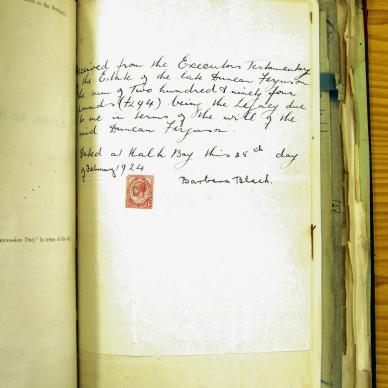 to the Account.
Received from the Executors Testamentary
the Estate of the late Duncan Ferguson
the sum of Two hundred & ninety four
pounds (£294) being the Legacy due
to me in terms of the will of the
said Duncan Ferguson.
Dated at Kalk Bay this 25th day
of February 1924
Barbara Black.
Succession Duty" in terms of the